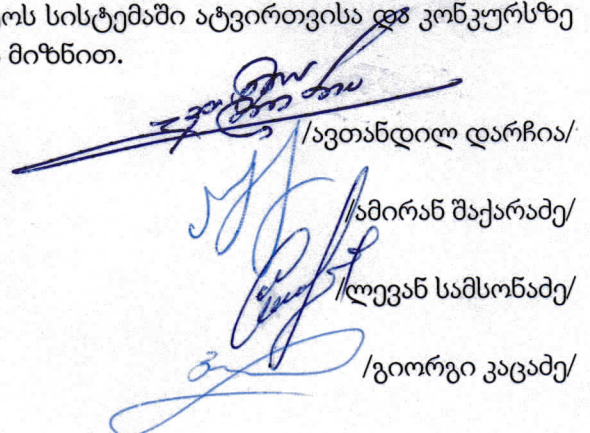 ოს სისტემაში ატვირთვისა და კონკურსზე
მიზნით.
/ავთანდილ დარჩია/
/ამირან შაქარაძე/
/ლევან სამსონაძე/
/გიორგი კაცაძე/